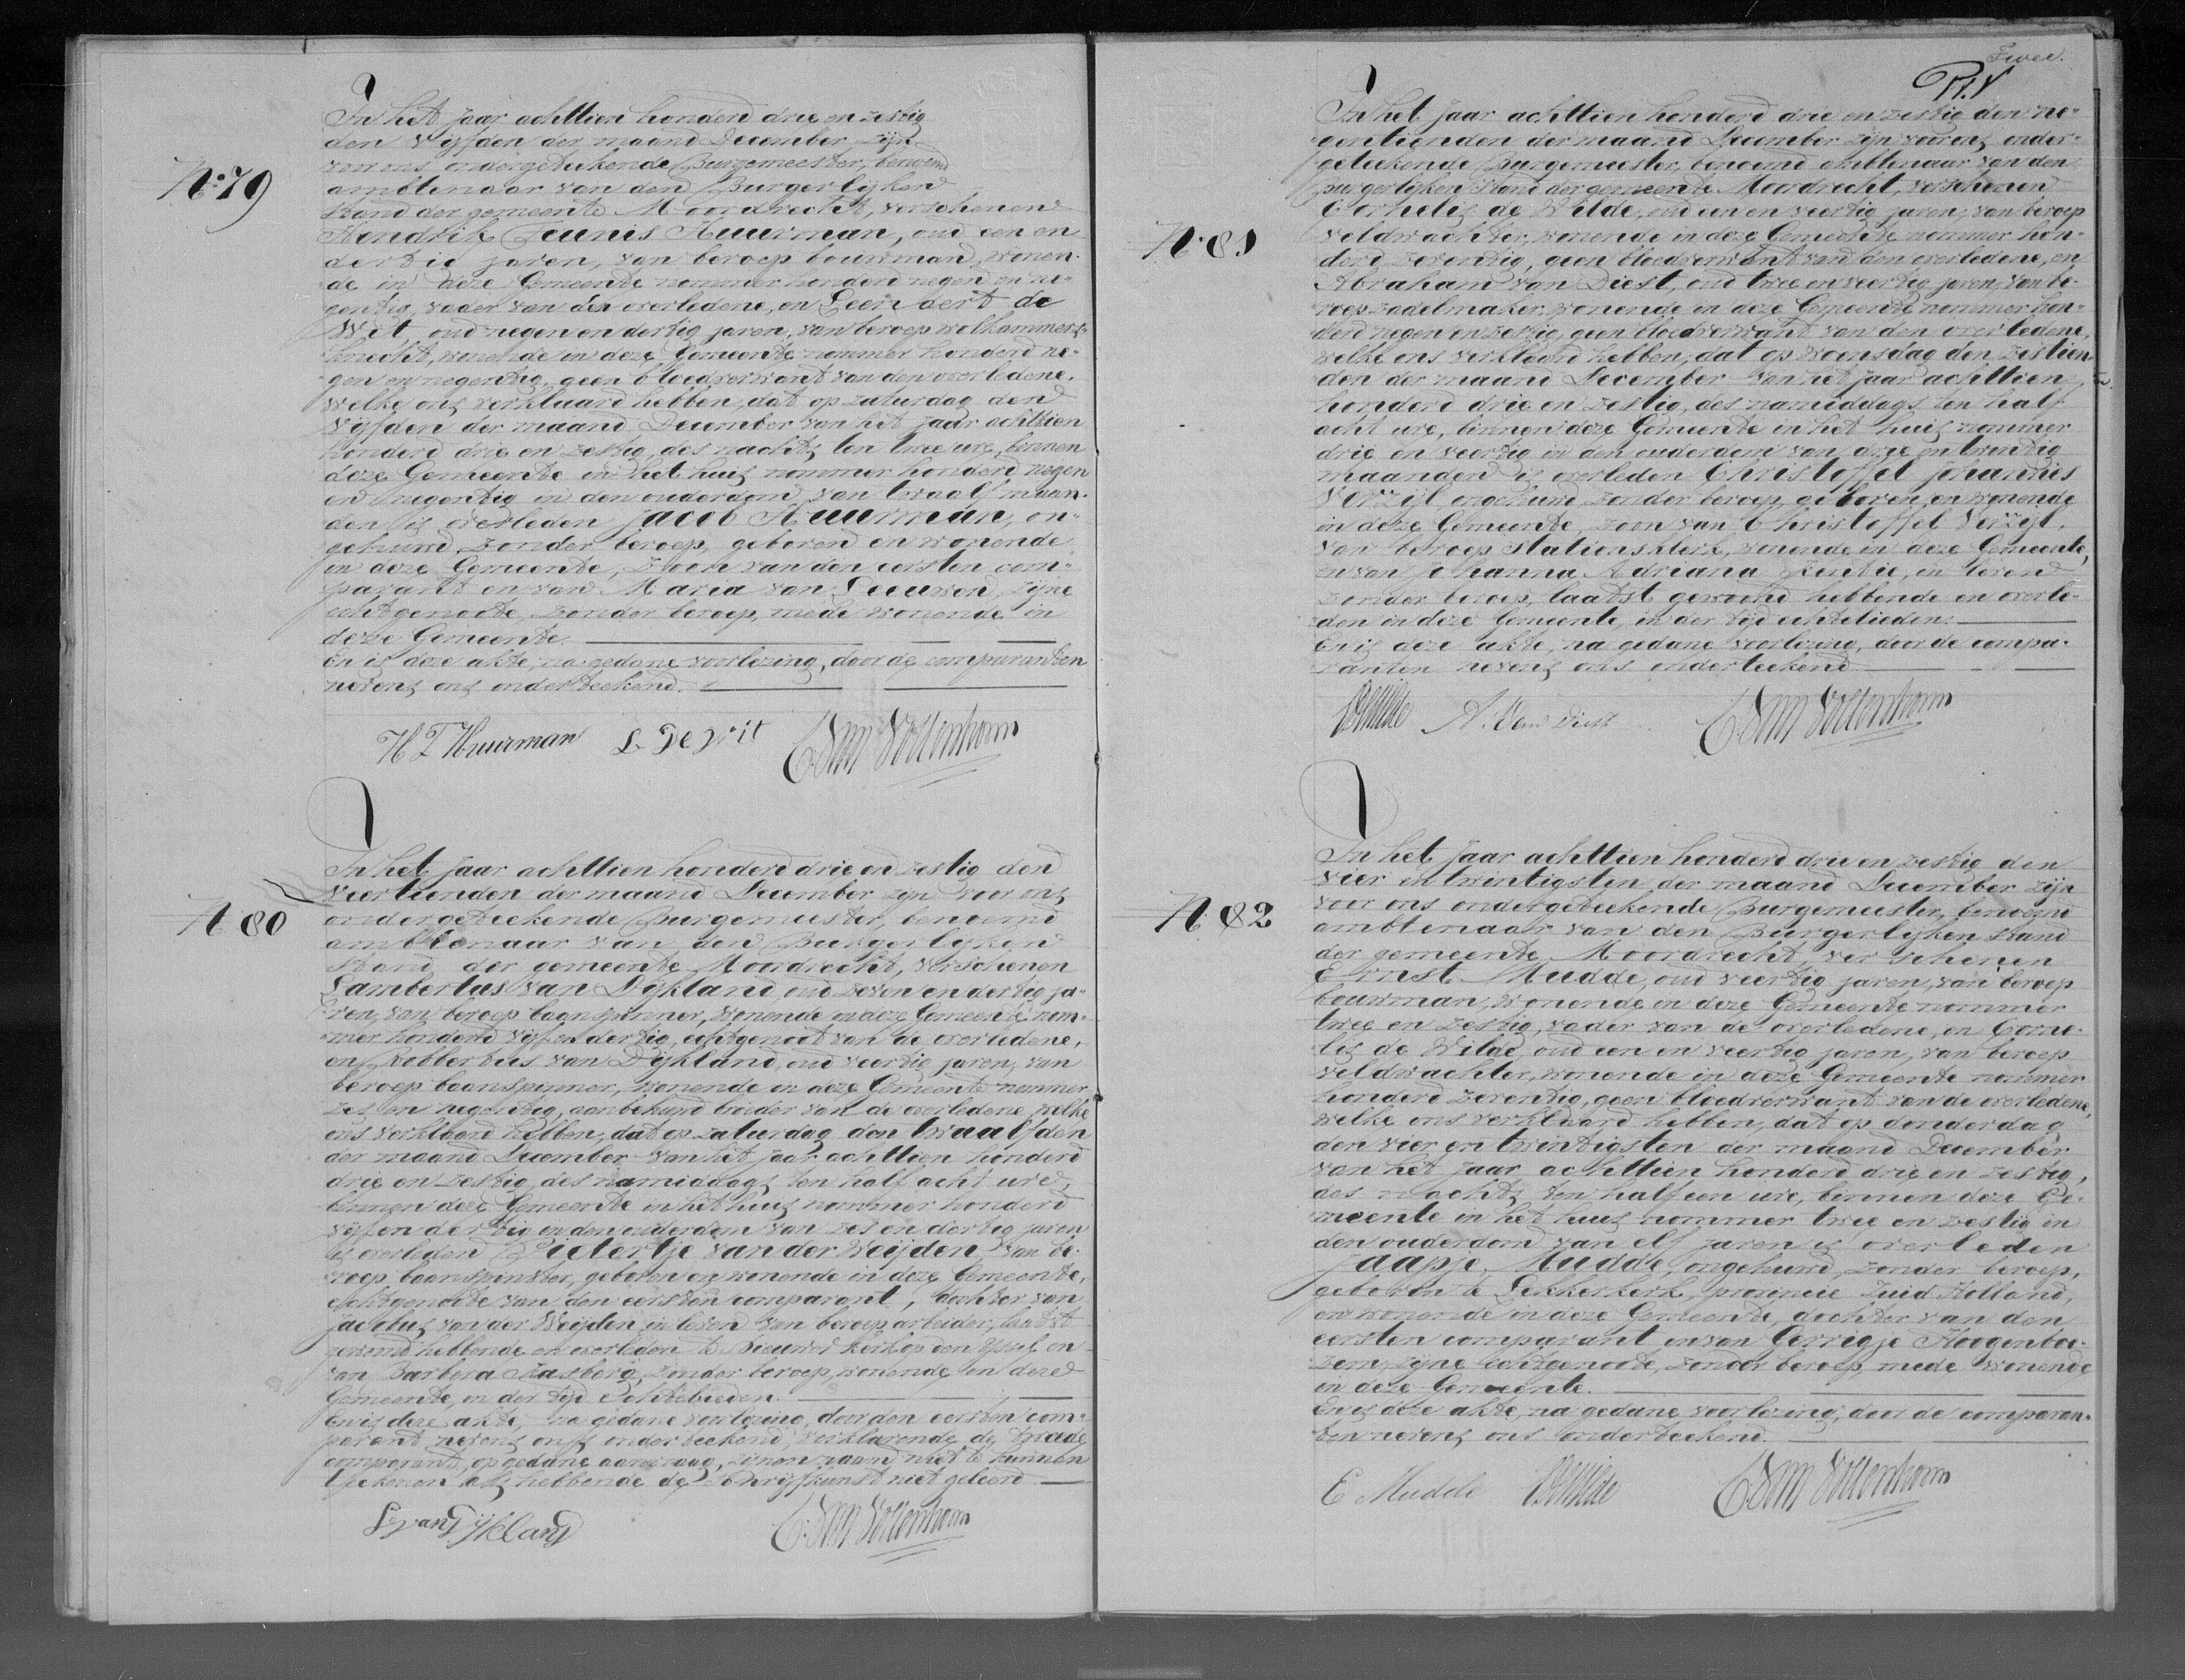 No. 79
In het jaar achttien honderd drie en zestig
den Vijfden der maand December, zijn
voor ons ondergeteekende Burgemeester, benoemd
ambtenaar van den Burgerlijken
Stand der gemeente Moordrecht, verschenen
Hendrik Teunis Huurman, oud een en
dertig jaren, van beroep bouwman, wonen-
de in deze Gemeente nommer honderd negen en ne-
gentig, vader van den overledene, en Leendert de
Wit oud negen en dertig jaren, van beroep wolkammers-
knecht, wonende in deze Gemeente nommer honderd ne-
gen en negentig, geen bloedverwant van den overledene,
welke ons verklaard hebben, dat op zaturdag den
Vijfden der maand December van het jaar achttien
honderd drie en zestig, des nachts ten twee ure, binnen
deze Gemeente in het huis nommer honderd negen
en negentig in den ouderdom van twaalf maan-
den is overleden Jacob Huurman, on-
gehuwd, zonder beroep, geboren en wonende
in deze Gemeente, Zoon van den eersten com-
parant en van Maria van Leeuwen, zijne
echtgenoote, zonder beroep, mede wonende in
deze Gemeente.
En is deze akte, na gedane voorlezing, door de comparanten
nevens ons onderteekend.
H T Huurman L. De Wit
N 80
In het jaar achttien honderd drie en zestig den
veertienden der maand December zijn voor ons
ondergeteekende Burgemeester, benoemd
ambtenaar van den Burgerlijken
Stand der gemeente Moordrecht, verschenen
Lambertus van Dijkland, oud zeven en dertig ja-
ren, van beroep baanspinner, wonende in deze Gemeente nom-
mer honderd vijf en dertig, echtgenoot van de overledene,
en Robbertus van Dijkland, oud veertig jaren, van
beroep baanspinner, wonende in deze Gemeente nommer
zes en negentig, aanbehuwd broeder van de overledene, welke
ons verklaard hebben, dat op zaturdag den twaalfden
der maand December van het jaar achttien honderd
drie en zestig, des namiddags ten half acht ure,
binnen deze Gemeente in het huis nommer honderd
vijf en dertig in den ouderdom van zes en dertig jaren
is overleden Pietertje van der Weijden, van be-
roep baanspinster, geboren en wonende in deze Gemeente,
echtgenoote van den eersten comparant, dochter van
Jacobus van der Weijden, in leven van beroep arbeider, laatst
gewoond hebbende en overleden te Nieuwerkerk op den IJssel en
van Barbera Hasberg, zonder beroep, wonende in deze
Gemeente, in der tijd Echtelieden.
En is deze akte, na gedane voorlezing, door den eersten com-
parant nevens ons onderteekend, verklarende de tweede
comparant, op gedane aanvraag, zijnen naam niet te kunnen
teekenen als hebbende de Schrijfkunst niet geleerd
L van Dijkland
Twee.
N 81
In het jaar achttien honderd drie en zestig den ne-
gentienden der maand December zijn voor ons onder-
geteekende Burgemeester, benoemd ambtenaar van den
burgerlijken Stand der gemeente Moordrecht, verschenen
Cornelis de Wilde, oud een en veertig jaren, van beroep
veldwachter, wonende in deze Gemeente nommer hon-
derd zeventig, geen bloedverwant van den overledene, en
Abraham van Diest, oud twee en veertig jaren, van be-
roep zadelmaker, wonende in deze Gemeente nommer hon-
derd negen en zestig, geen bloedverwant van den overledene,
welke ons verklaard hebben, dat op Woensdag den zestien
den der maand December van het jaar achttien
honderd drie en zestig, des namiddags ten half
acht ure, binnen deze Gemeente in het huis nommer
drie en veertig in den ouderdom van drie en twintig
maanden is overleden Christoffel Johannes
Verzijl ongehuwd zonder beroep, geboren en wonende
in deze Gemeente, zoon van Christoffel Verzijl,
van beroep Stationsklerk, wonende in deze Gemeente,
en van Johanna Adriana Kentie, in leven
zonder beroep, laatst gewoond hebbende en overle-
den in deze Gemeente, in der tijd echtelieden.
En is deze akte, na gedane voorlezing, door de compa-
ranten nevens ons onderteekend
A. Van Diest
N 82
In het jaar achttien honderd drie en zestig den
vier en twintigsten der maand December zijn
voor ons ondergeteekende Burgemeester, benoemd
ambtenaar van den Burgerlijken stand
der gemeente Moordrecht, verschenen
Ernst Mudde, oud veertig jaren, van beroep
bouwman, wonende in deze Gemeente nommer
twee en zestig, vader van de overledene, en Corne-
lis de Wilde, oud een en veertig jaren, van beroep
veldwachter, wonende in deze Gemeente nommer
honderd zeventig, geen bloedverwant van de overledene,
welke ons verklaard hebben, dat op donderdag
den vier en twintigsten der maand December
van het jaar achttien honderd drie en zestig,
des nachts ten half een ure, binnen deze Ge-
meente in het huis nommer twee en zestig in
den ouderdom van elf jaren is overleden
Jaapje Mudde, ongehuwd, zonder beroep,
geboren te Lekkerkerk, provincie Zuid Holland,
en wonende in deze Gemeente, dochter van den
eersten comparant en van Gerrigje Hoogenboe-
zem zijne Echtgenoote, zonder beroep, mede wonende
in deze Gemeente.
En is deze akte, na gedane voorlezing, door de comparan-
ten nevens ons onderteekend.
E Mudde